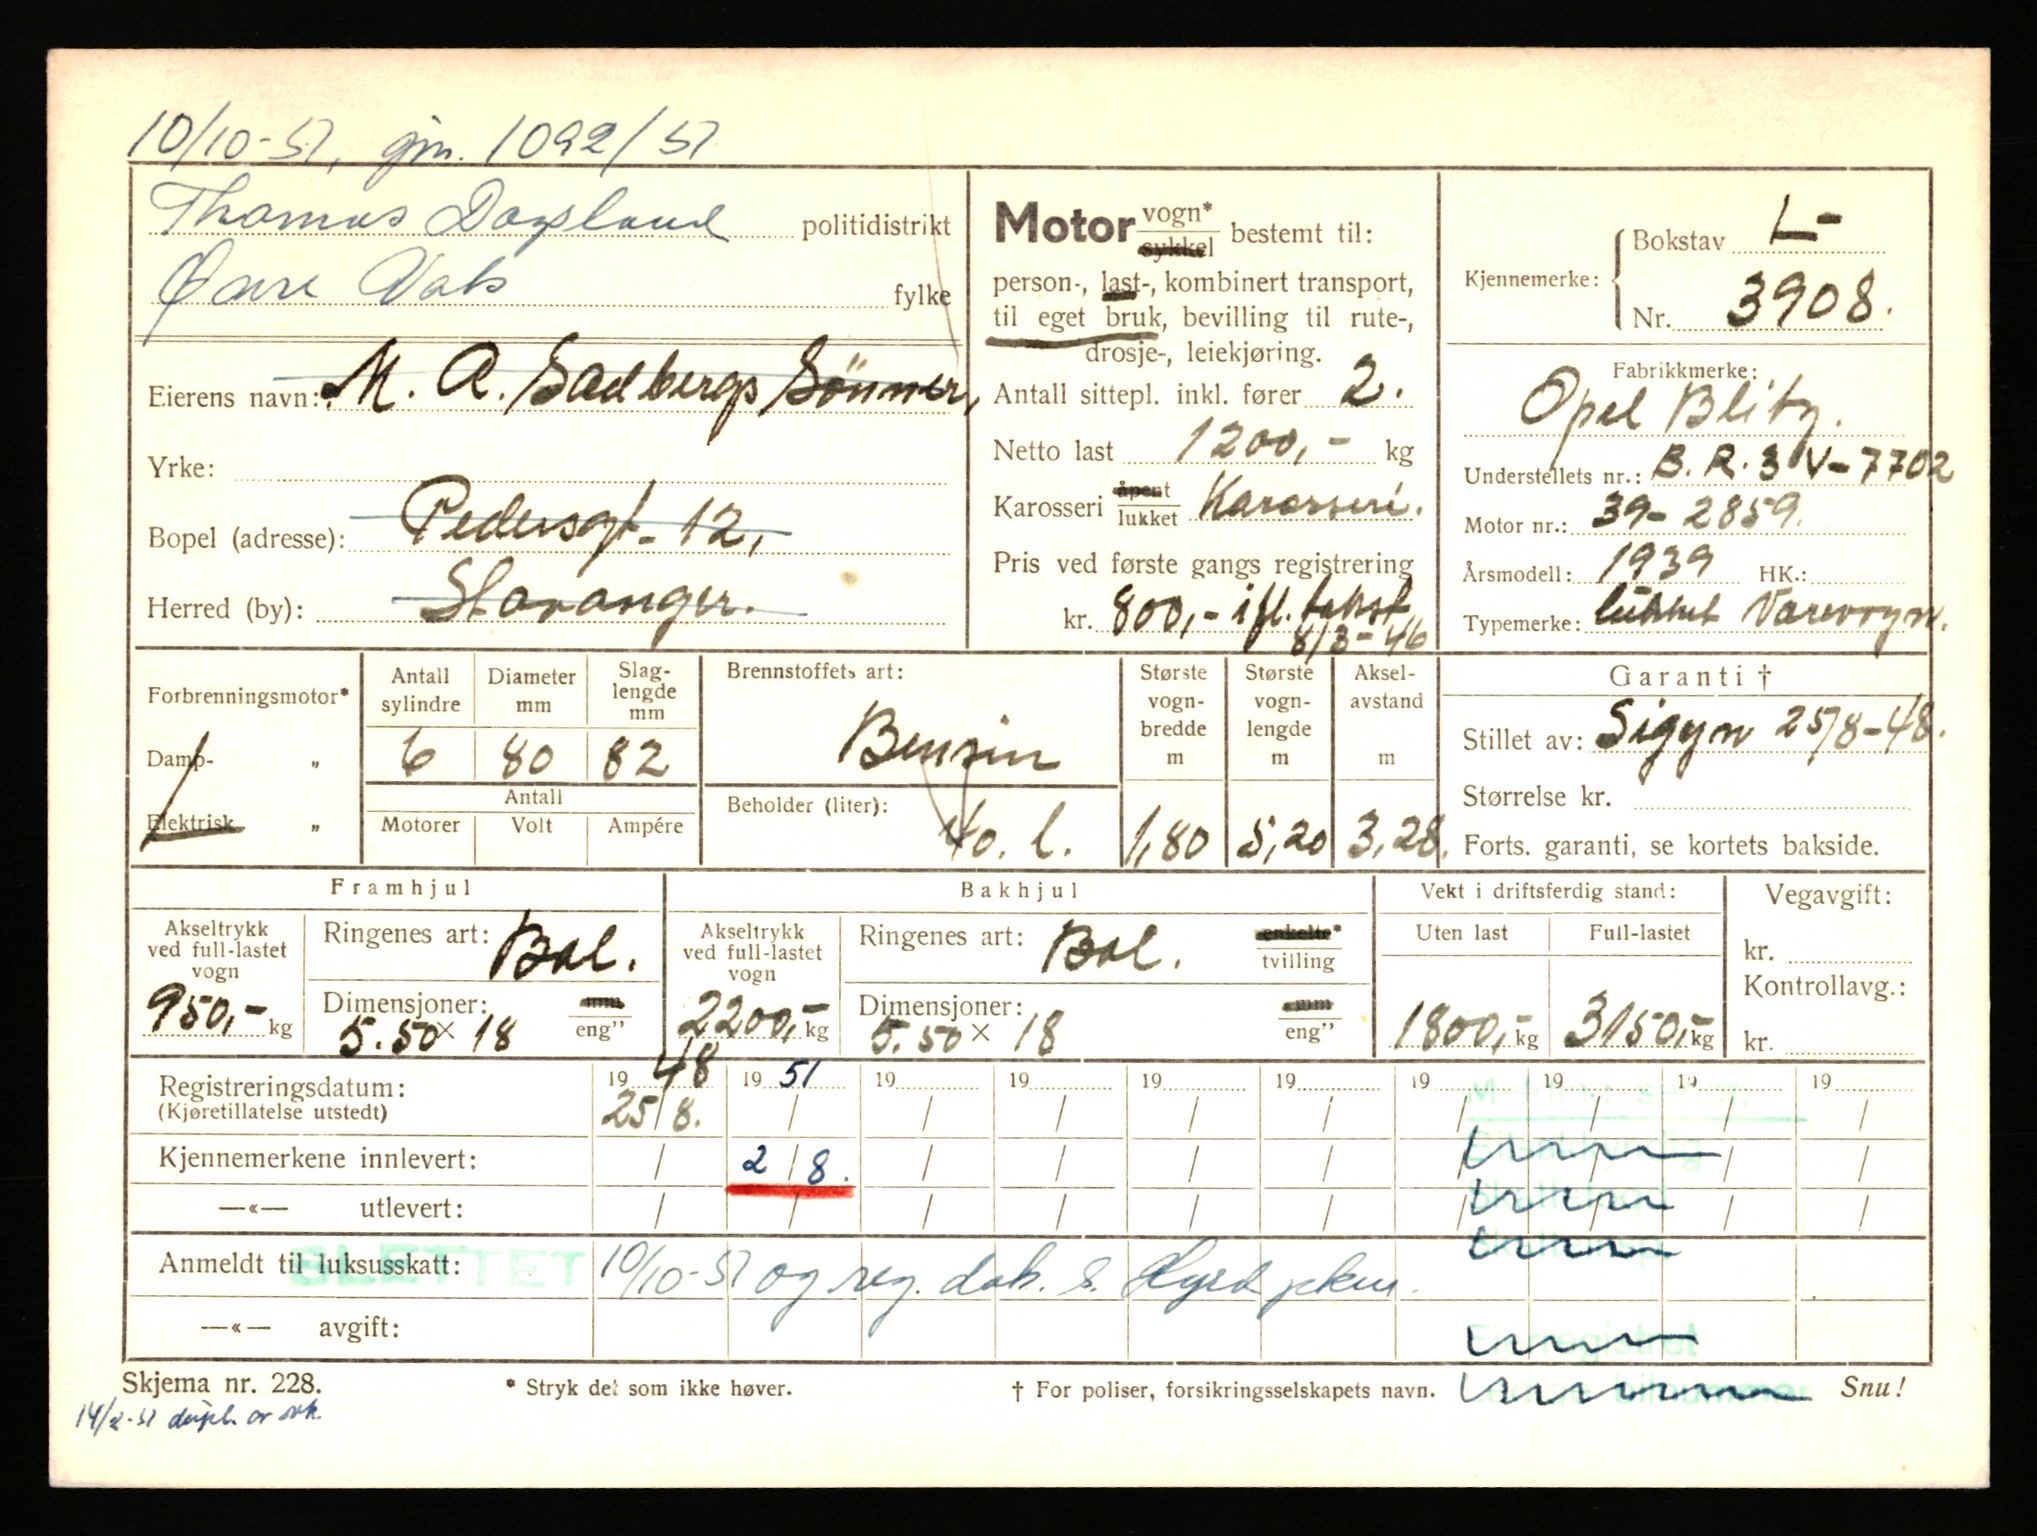 10/10-51, gjm. 1092/51
Thomas Dagsland politidistrikt
Øvre Vats fylke
Eierens navn: M. A. Sadbergs Sönner,
Yrke:
Bopel (adresse): Pedersgt. 12,
Herred (by): Stavanger.
Motor vogn* sykkel bestemt til:
person-, last-, kombinert transport,
til eget bruk, bevilling til rute-,
drosje-, leiekjøring.
Antall sittepl. inkl. fører 2.
Netto last 1200,- kg
Karosseri åpent lukket Karosseri.
Pris ved første gangs registrering
kr. 800,- ifl. takst
8/3-46
Kjennemerke: Bokstav L-
Nr. 3908.
Fabrikkmerke:
Opel Blitz.
Understellets nr.: B. R. 3 V-7702
Motor nr.: 39-2859.
Årsmodell: 1939 HK.:
Typemerke: lukket Varevogn.
Forbrenningsmotor*
Damp- "
Elektrisk "
Antall sylindre
6
Diameter mm
80
Slag-lengde mm
82
Antall
Motorer Volt Ampére
Brennstoffets art:
Bensin
Beholder (liter):
40. l.
Største vogn-bredde m
1,80
Største vogn-lengde m
5,20
Aksel-avstand m
3,28.
Garanti †
Stillet av: Sigyn 25/8-48.
Størrelse kr.
Forts. garanti, se kortets bakside.
Framhjul
Akseltrykk ved full-lastet vogn
950,- kg
Ringenes art: Bal.
Dimensjoner: mm
5.50 x 18 eng"
Bakhjul
Akseltrykk ved full-lastet vogn
2200,- kg
Ringenes art: Bal. enkelte* tvilling
Dimensjoner: mm
5.50 x 18 eng"
Vekt i driftsferdig stand:
Uten last Full-lastet
1800,- kg 3150,- kg
Vegavgift:
kr.
Kontrollavg.:
kr.
Registreringsdatum: 19 48 19 51 19 19 19 19 19 19 19 19
(Kjøretillatelse utstedt) 25/8. / / / / / / / / /
Kjennemerkene innlevert: / 2/8. / / / / / / / /
—«— utlevert: / / / / / / / / / /
Anmeldt til luksusskatt: 10/10-51 og reg. dok. s.
SLETTET
—«— avgift:
Skjema nr. 228. * Stryk det som ikke høver. † For poliser, forsikringsselskapets navn. Snu!
14/2-51 dupl. av vk.